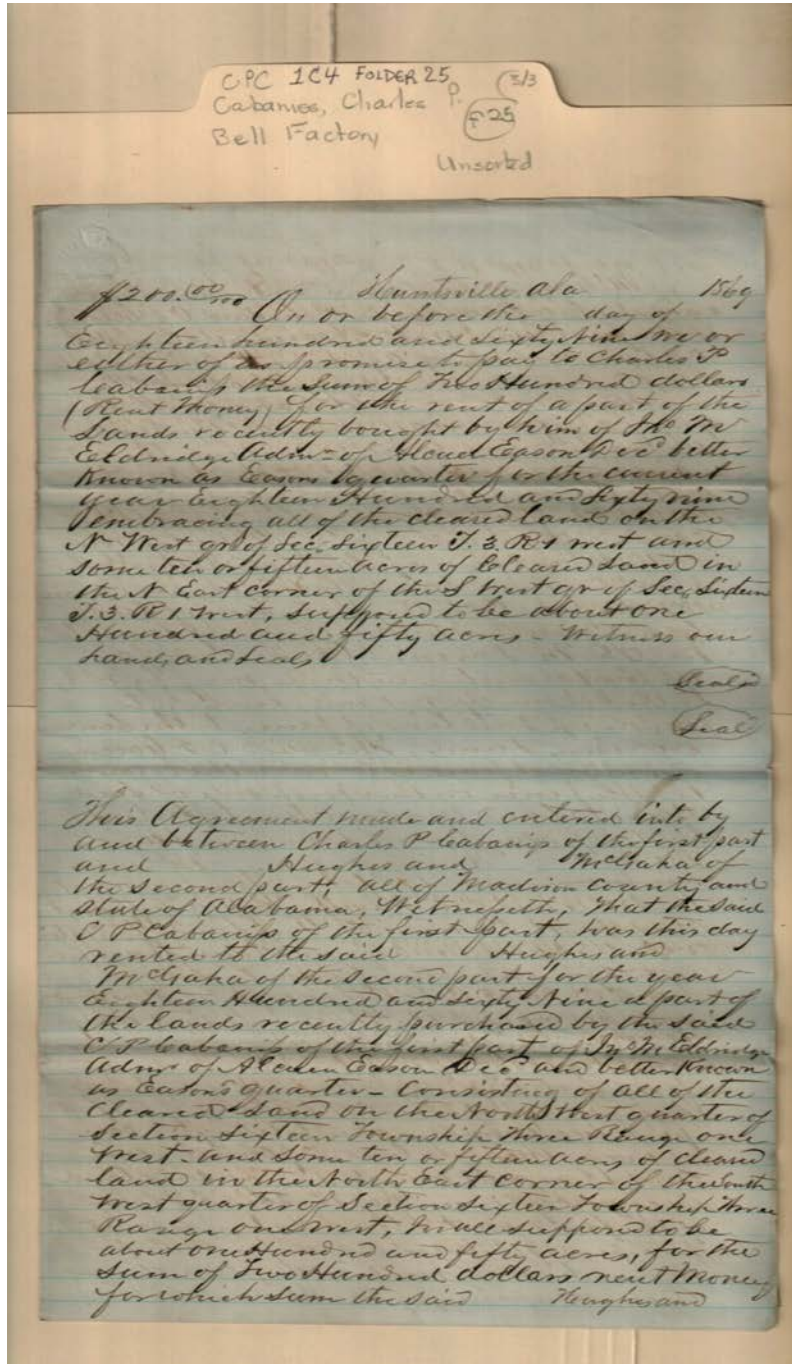 CPC 1C4 FOLDER 25 3/3
Cabaniss, Charles P. F25
Bell Factory
Unsorted
$200.00/100 Huntsville Ala 1869
On or before the day of
Eighteen hundred and Sixty Nine we or
either of us promise to pay to Charles P
Cabaniss the Sum of Two Hundred dollars
(Rent Money) for the rent of a part of the
Lands recently bought by him of Jno M
Eldridge Admr of Eason Decd better
Known as Easons quarter for the current
year Eighteen Hundred and Sixty nine
embracing all of the cleared land on the
N West qr of Sec. Sixteen T. 3. R 1 west and
some ten or fifteen acres of Cleared Land in
the N East corner of the S West qr of Sec. Sixteen
T. 3. R 1 West, supposed to be about one
Hundred and fifty acres - Witness our
hands and Seals
Seal
Seal
This Agreement made and entered into by
and between Charles P Cabaniss of the first part
and Hughes and McGaha of
the Second part, all of Madison County and
State of Alabama, Witnesseth, That the said
C P Cabaniss of the first part, has this day
rented to the said Hughes and
McGaha of the Second part for the year
Eighteen Hundred and Sixty Nine a part of
the lands recently purchased by the said
C P Cabaniss of the first part of Jno M Eldridge
Admr of Eason Decd and better Known
as Eason's quarter - Consisting of all of the
Cleared Land on the North West quarter of
Section Sixteen Township Three Range one
West. and Some ten or fifteen acres of cleared
land in the North East corner of the South
West quarter of Section Sixteen Township Three
Range one West, in all supposed to be
about one Hundred and fifty acres, for the
Sum of Two Hundred dollars rent Money
for which Sum the said Hughes and